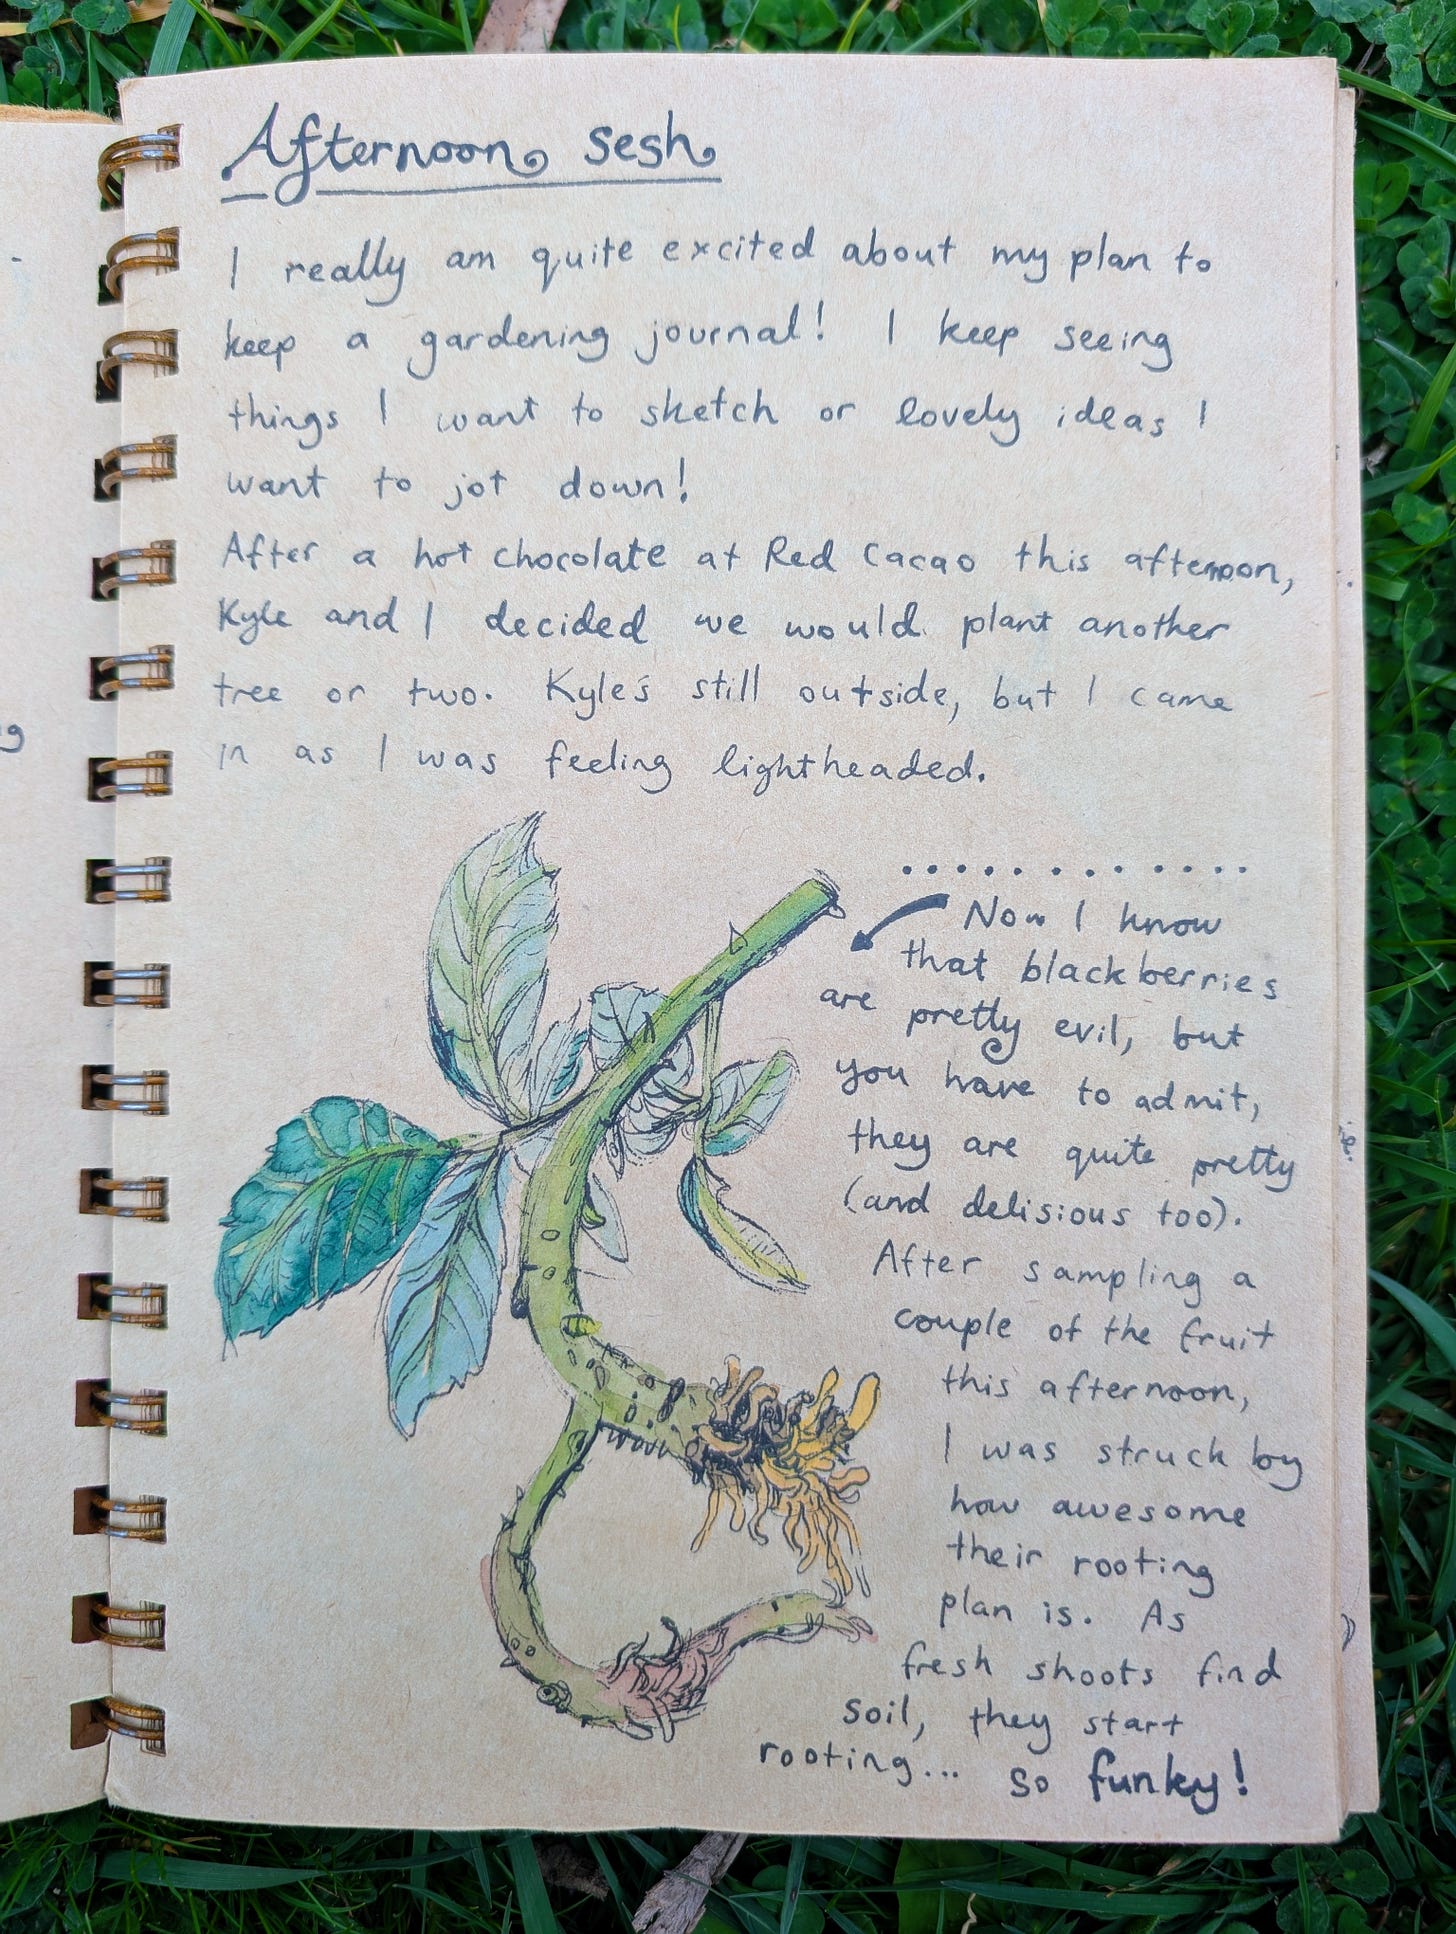 Afternoon sesh
I really am quite excited about my plan to
keep a gardening journal! I keep seeing
things I want to sketch or lovely ideas I
want to jot down!
After a hot chocolate at Red Cacao this afternoon,
Kyle and I decided we would plant another
tree or two. Kyle's still outside, but I came
in as I was feeling lightheaded.
Now I know
that blackberries
are pretty evil, but
you have to admit,
they are quite pretty
(and delisious too).
After sampling a
couple of the fruit
this afternoon,
I was struck by
how awesome
their rooting
plan is. As
fresh shoots find
soil, they start
rooting... so funky!